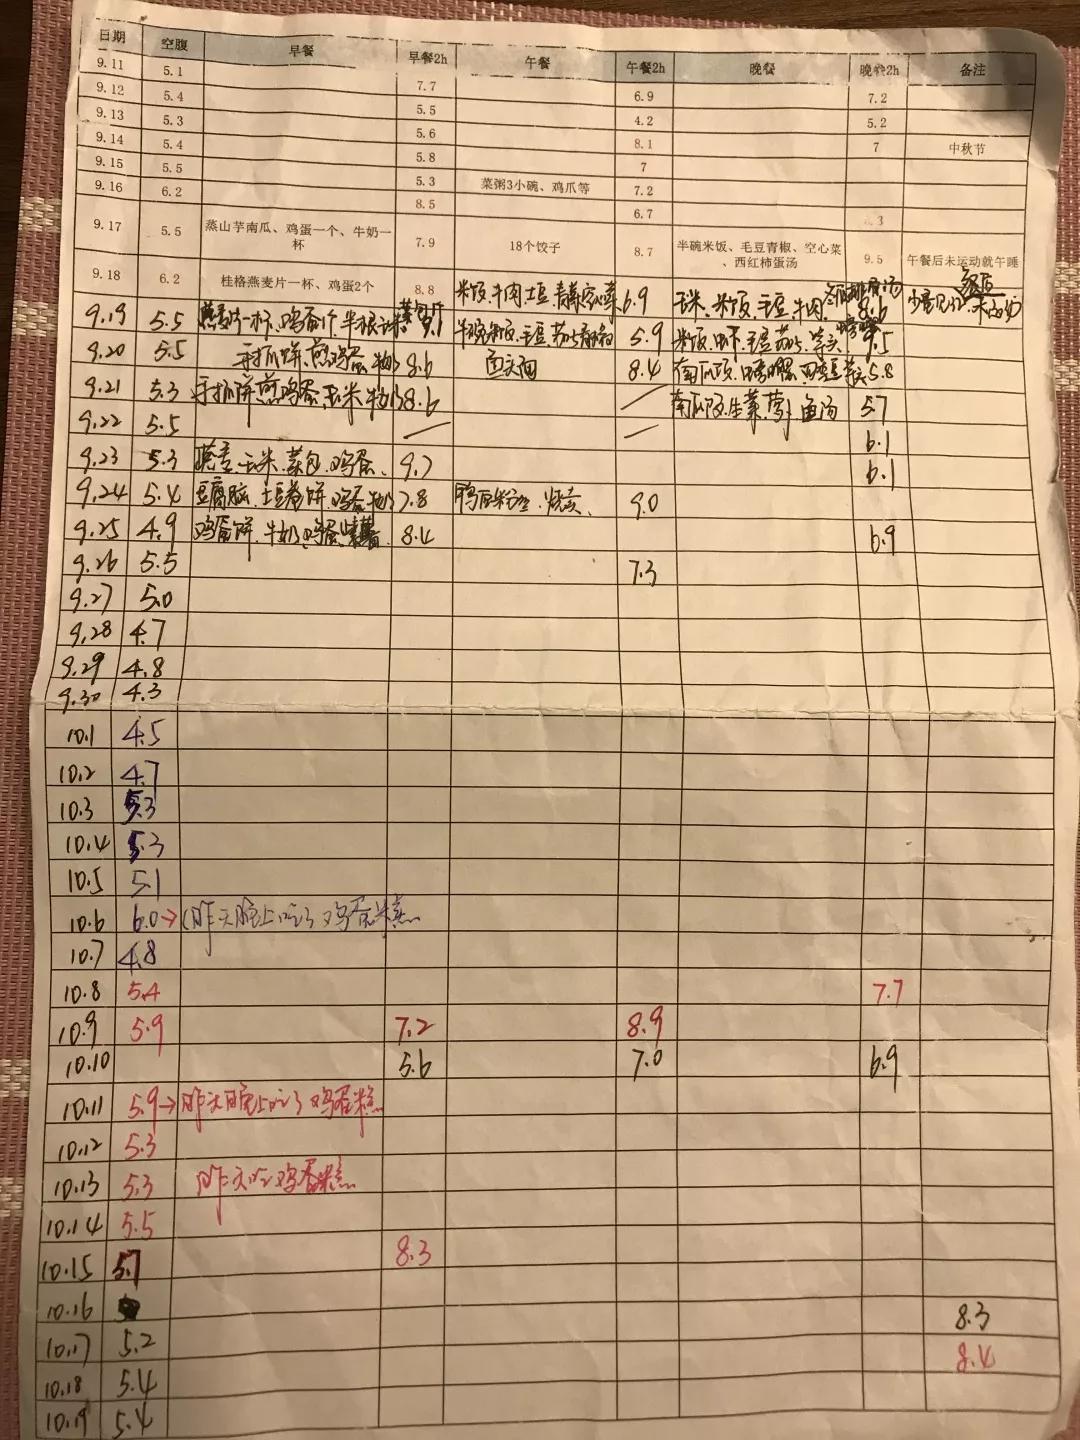 日期 空腹 早餐 早餐2h 午餐 午餐2h 晚餐 晚餐2h 备注
9.11 5.1 7.7 6.9 7.2
9.12 5.4 5.5 4.2 5.2
9.13 5.3 5.6 8.1 7 中秋节
9.14 5.4 5.8 7
9.15 5.5 5.3 菜粥3小碗、鸡爪等 7.2
9.16 6.2 8.5 6.7
9.17 5.5 蒸山芋南瓜、鸡蛋一个、牛奶一杯 7.9 18个饺子 8.7 半碗米饭、毛豆青椒、空心菜、西红柿蛋汤 9.5 午餐后未运动就午睡
9.18 6.2 桂格燕麦片一杯、鸡蛋2个 8.8 米饭.牛肉.土豆 6.9 玉米.米饭.毛豆.牛肉 8.6
9.19 5.5 9.1 5.9 9.5
9.20 5.5 手抓饼.煎鸡蛋 8.6 8.4 5.8
9.21 5.3 手抓饼.煎鸡蛋.玉米 8.6 鱼汤 5.7
9.22 5.5 6.1
9.23 5.3 玉米.菜包.鸡蛋. 9.7 6.1
9.24 5.4 豆腐脑.土豆卷饼.鸡蛋 7.8 9.0
9.25 4.9 鸡蛋饼.牛奶.鸡蛋.紫薯. 8.4 6.9
9.26 5.5 7.3
9.27 5.0
9.28 4.7
9.29 4.8
9.30 4.3
10.1 4.5
10.2 4.7
10.3 5.3
10.4 5.3
10.5 5.1
10.6 6.0→(昨天晚上吃了鸡蛋糕
10.7 4.8
10.8 5.4 7.7
10.9 5.9 7.2 8.9
10.10 5.6 7.0 6.9
10.11 5.9→昨天晚上吃了鸡蛋糕
10.12 5.3
10.13 5.3 昨天吃鸡蛋糕
10.14 5.5
10.15 5.7 8.3
10.16 8.3
10.17 5.2 8.4
10.18 5.4
10.19 5.4